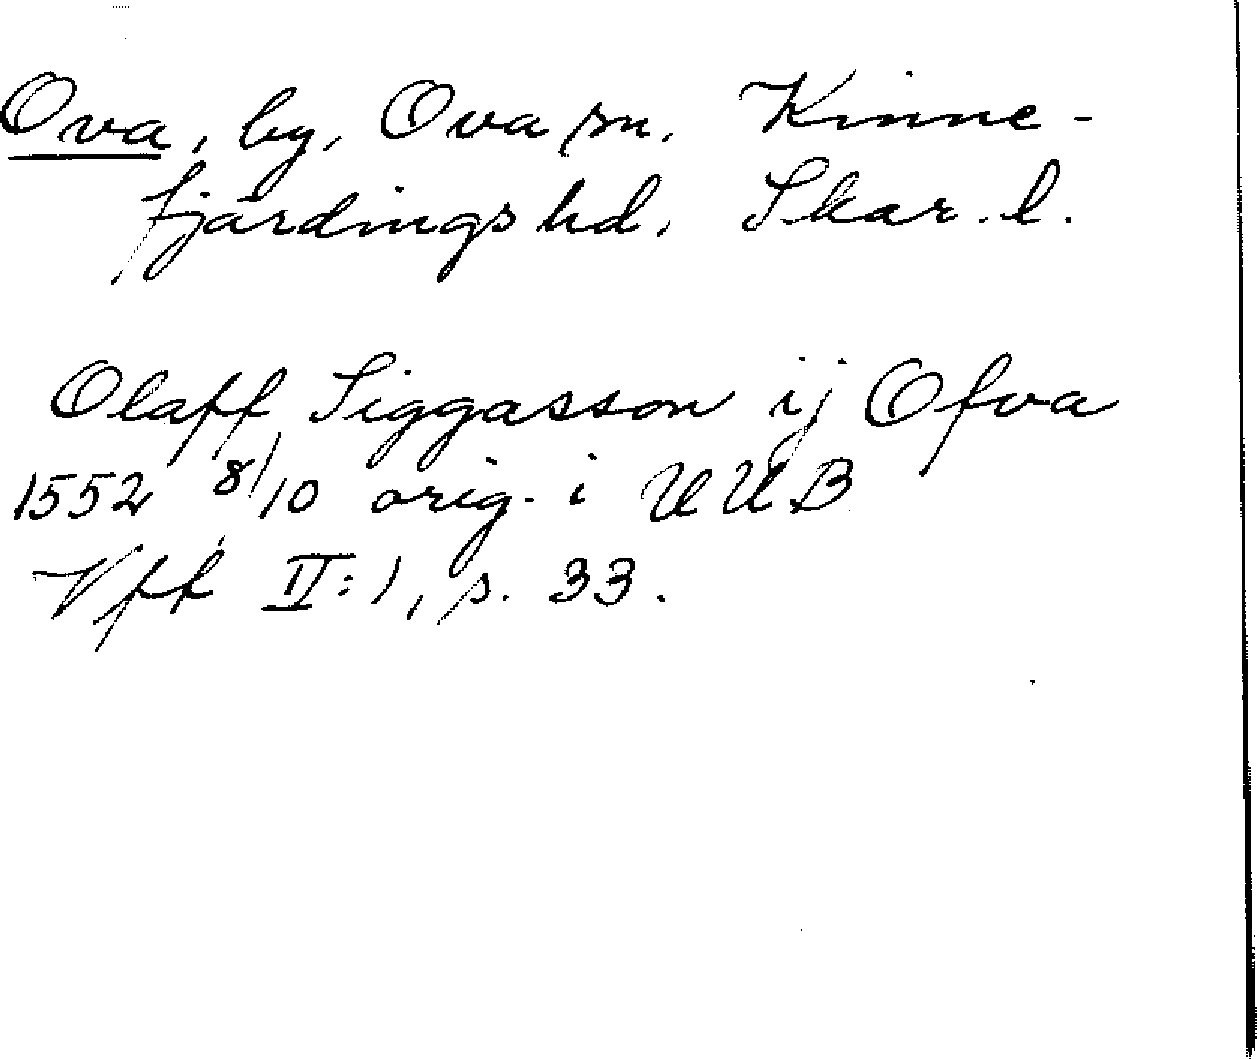 Ova, by, Ova sn, Kinne-
fjärdings hd, Skar. l.
Olaff Siggasson ij Ofva
1552 8/10 orig. i UUB
Vff II:1, s. 33.